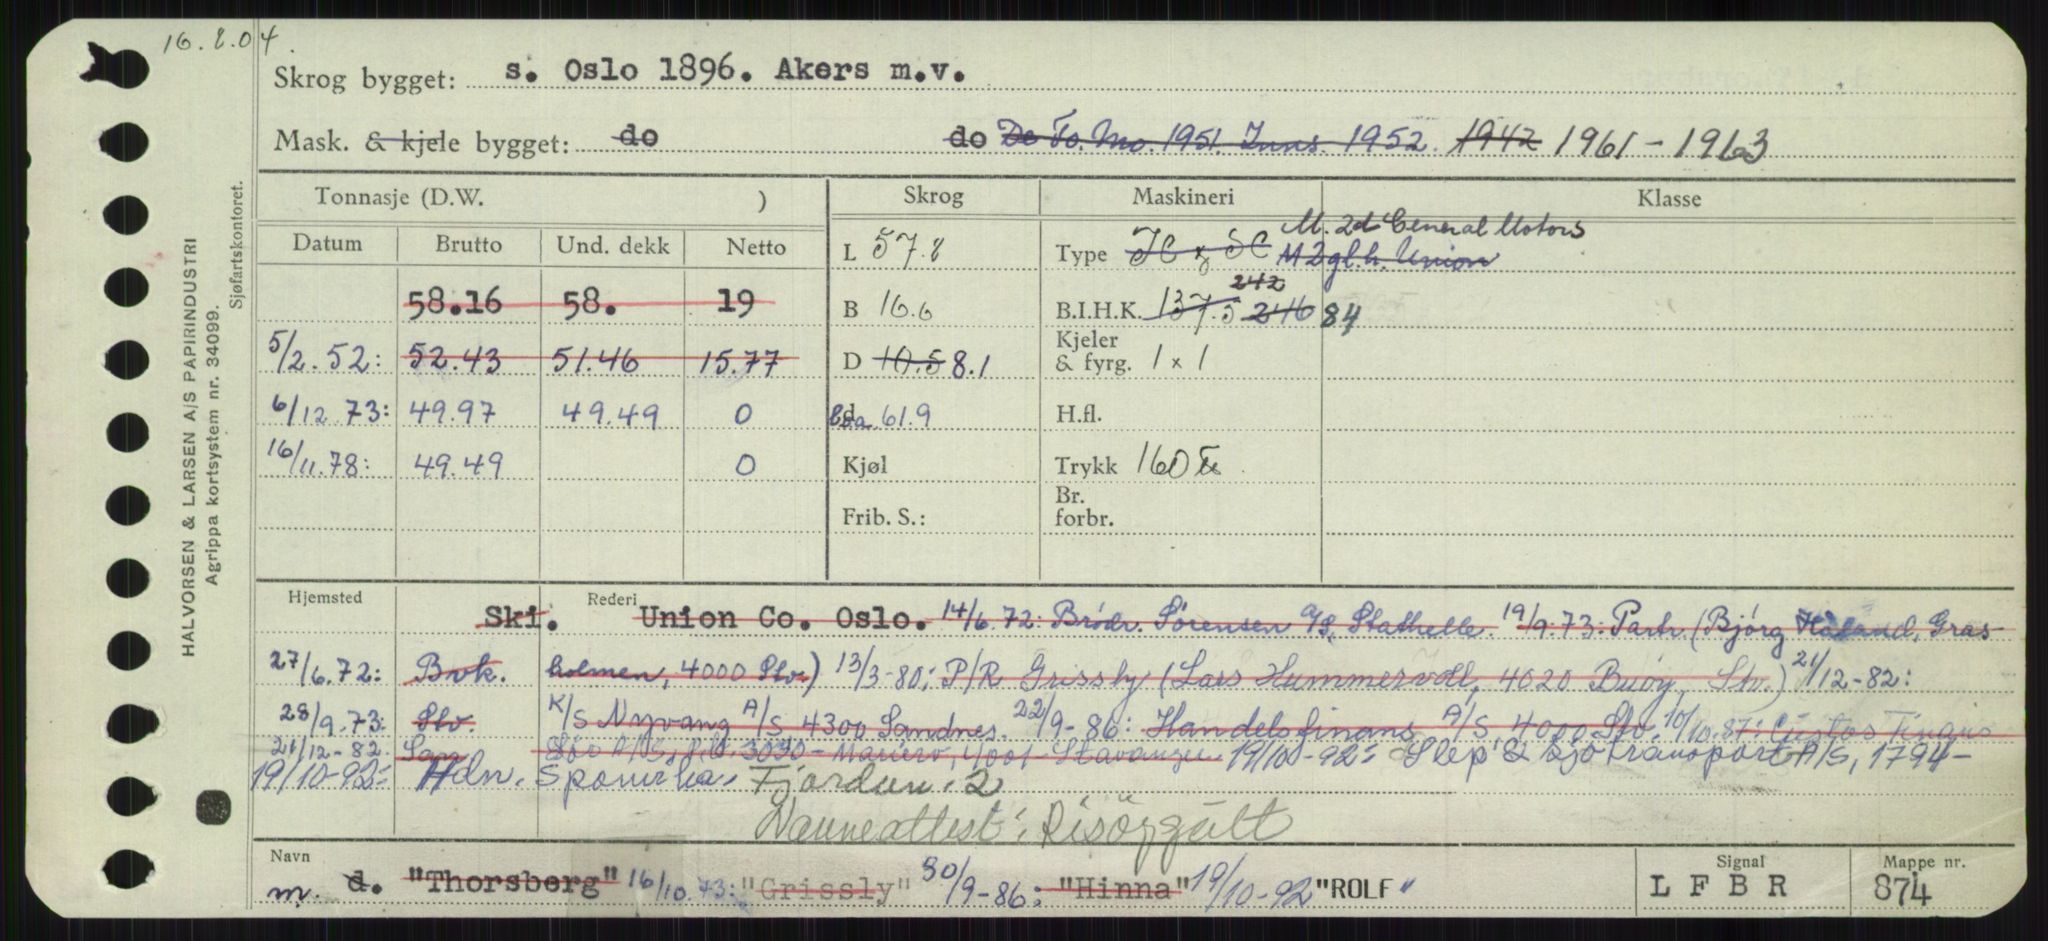 16.8.04.
Skrog bygget: s. Oslo 1896. Akers m.v.
Mask. & kjele bygget: do do De Fo. Mo. 1951. Inns. 1952. 1942 1961 - 1963
Tonnasje (D.W. ) Skrog Maskineri Klasse
Datum Brutto Und. dekk Netto
M. 2d General Motors
L 57.8 Type M 2 gl.h. Union
58.16 58. 19
242
B 16.6 B.I.H.K. 137.5 246 84
5/2.52: 52.43 51.46 15.77
D 10.5 8.1 Kjeler & fyrg. 1 x 1
6/12.73: 49.97 49.49 0
d loa. 61.9 H.fl.
16/11.78: 49.49 0
Kjøl Trykk 160
Frib. S.: Br. forbr.
Hjemsted Rederi
Ski. Union Co. Oslo. 14/6.72: Brødr. Sørensen A/S, Stathelle. 19/9.73: Partr. (Bjørg Håland, Gras-
27/6.72: Brvk. holmen, 4000 Stv.) 13/3-80: P/R Grissly (Lars Hummervoll, 4020 Buøy, Stv.) 21/12-82:
28/9.73: Stv. K/S Nyvang A/S, 4300 Sandnes. 22/9-86: Handelsfinans A/S, 4000 Stv. 10/10.87: Custos Finans
21/12-82. San. Sør A/S, 3030 - Mariero, 4001 Stavanger. 19/10-92: Slep & Sjøtransport A/S, 1794-
19/10-92: Hdn. Sponvika. Fjordun. 2
Navneattest: Risøygutt
Navn Signal Mappe nr.
m. d. "Thorsberg" 16/10.73: "Grissly" 30/9-86: "Hinna" 19/10-92 "ROLF" L F B R 874
HALVORSEN & LARSEN A/S PAPIRINDUSTRI
Agrippa kortsystem nr. 34099.
Sjøfartskontoret.